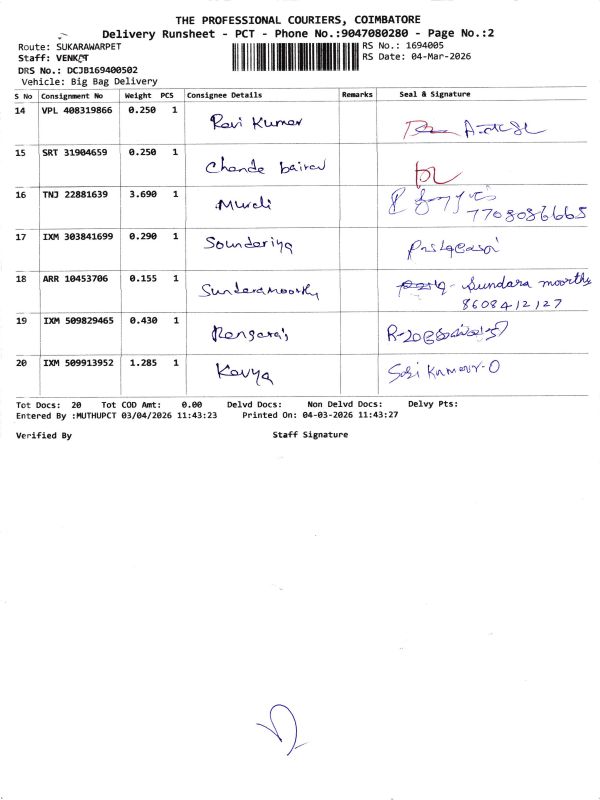 THE PROFESSIONAL COURIERS, COIMBATORE
Delivery Runsheet - PCT - Phone No.:9047080280 - Page No.:2
Route: SUKARAWARPET RS No.: 1694005
Staff: VENKAT RS Date: 04-Mar-2026
DRS No.: DCJB169400502
Vehicle: Big Bag Delivery
S No Consignment No Weight PCS Consignee Details Remarks Seal & Signature
14 VPL 408319866 0.250 1 Ravi Kumar
15 SRT 31904659 0.250 1 Chande bairav
16 TNJ 22881639 3.690 1 Murali
7708086665
17 IXM 303841699 0.290 1 Sounderiya
18 ARR 10453706 0.155 1 Sunderamoorthy Sundara moorthy
8608412127
19 IXM 509829465 0.430 1 Rengaraj
20 IXM 509913952 1.285 1 Kavya
Tot Docs: 20 Tot COD Amt: 0.00 Delvd Docs: Non Delvd Docs: Delvy Pts:
Entered By :MUTHUPCT 03/04/2026 11:43:23 Printed On: 04-03-2026 11:43:27
Verified By Staff Signature